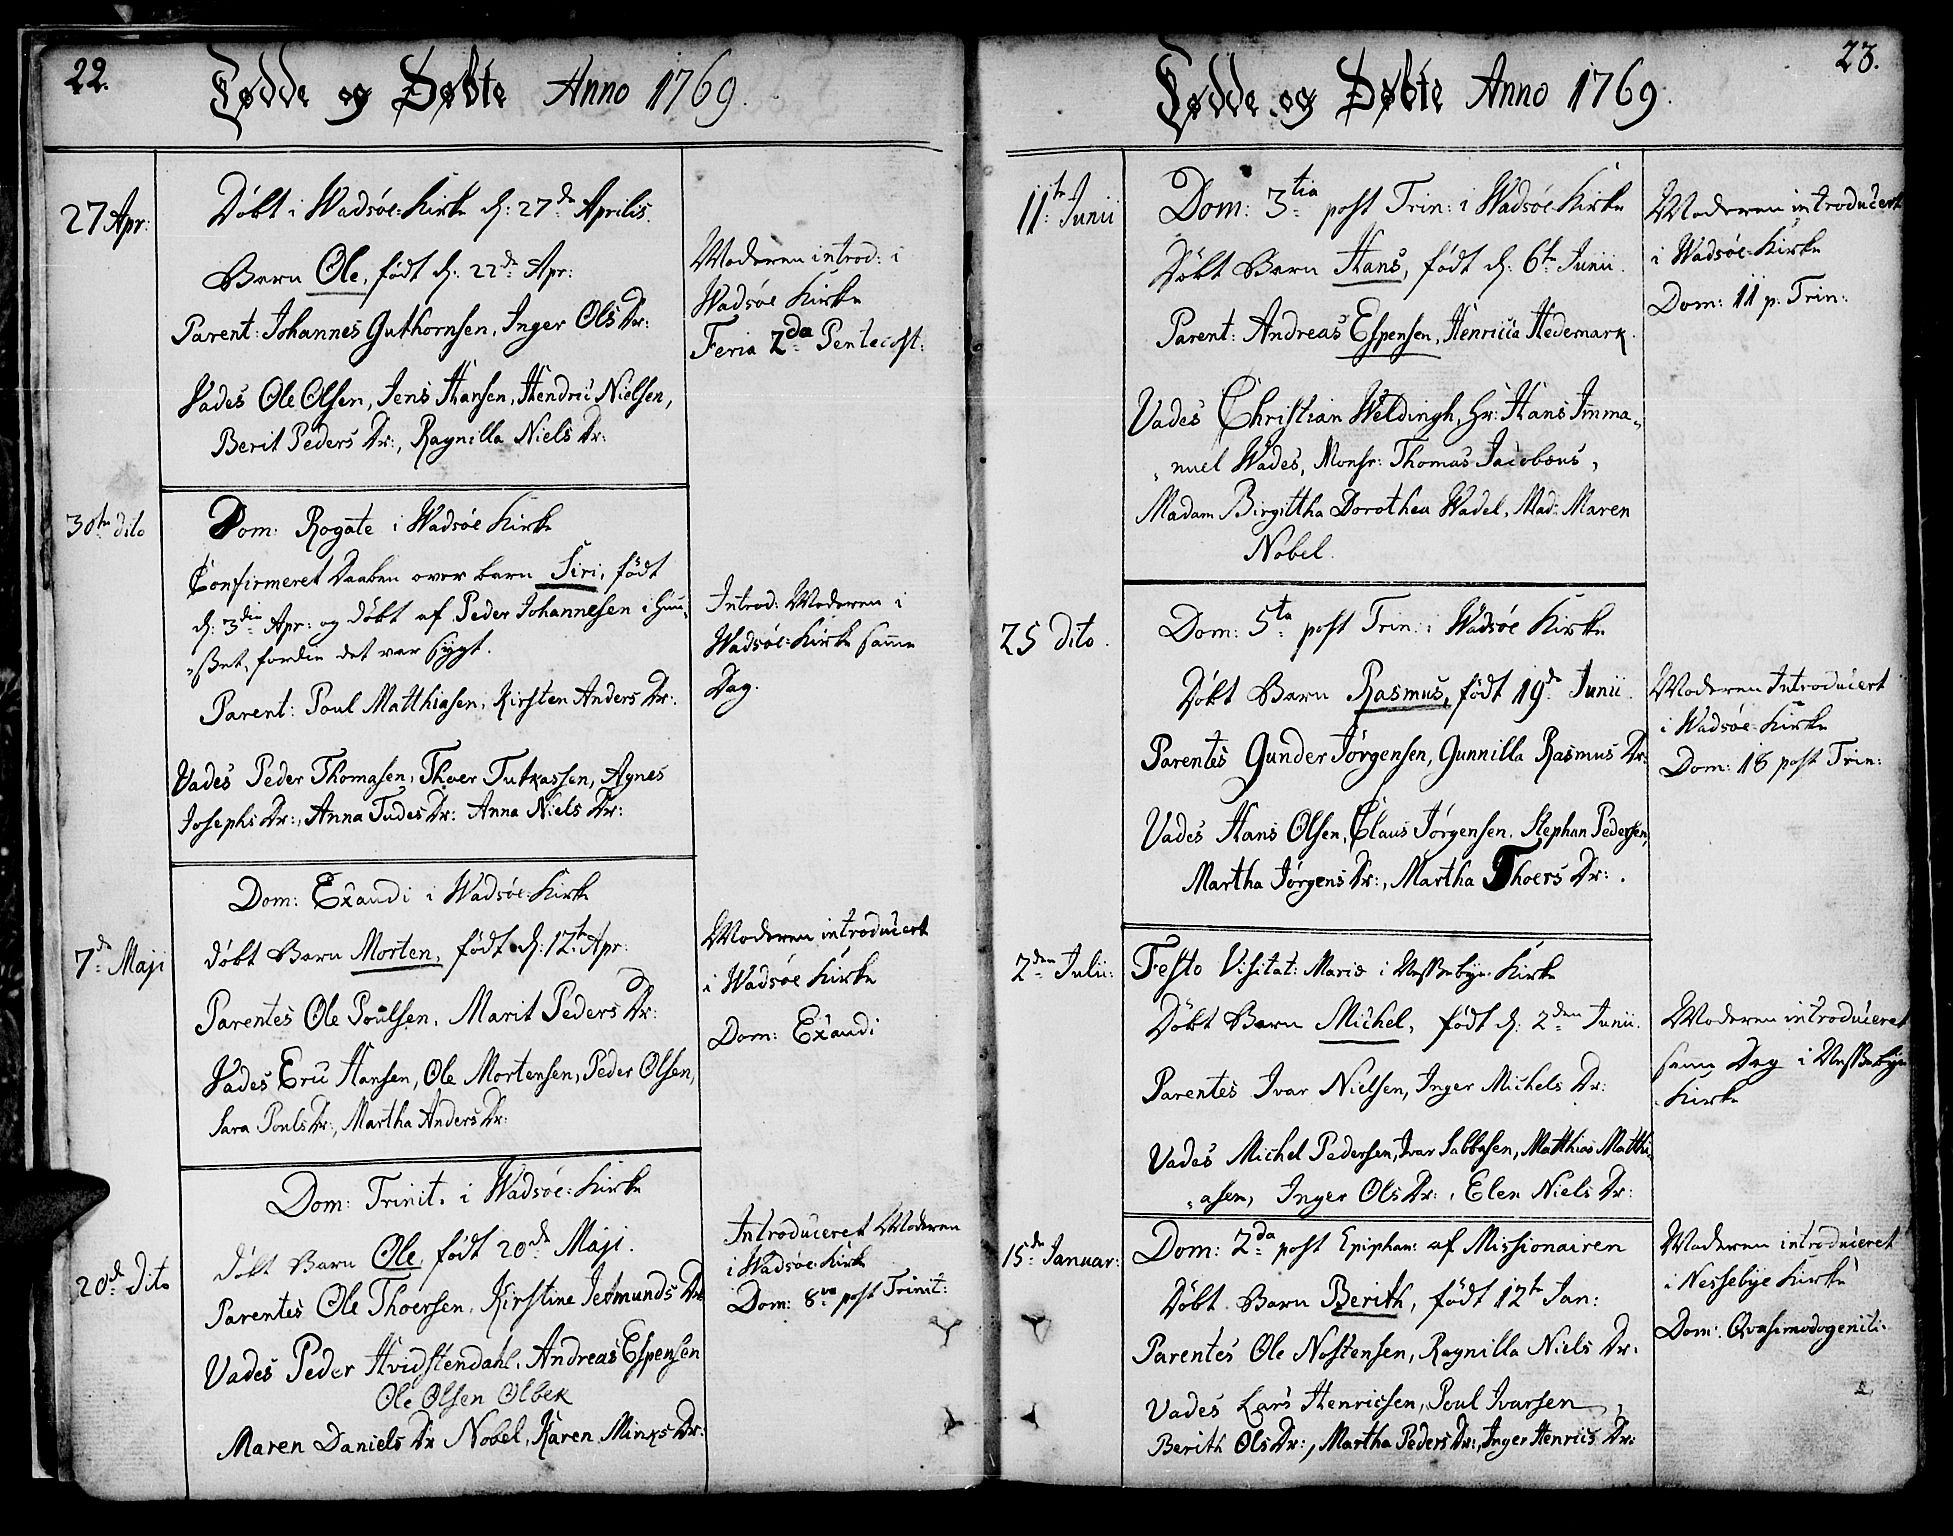 22.
Fødde og Døbte Anno 1769.
27 Apr:
Døbt i Wadsøe-Kirke d: 27de Aprilis.
Barn Ole, født d: 22de Apr:
Parent: Johannes Guthornsen, Inger Ols Dr:
Vades Ole Olsen, Jens Hansen, Hendric Nielsen,
Berit Peders Dr:, Ragnilla Niels Dr:
Moderen introd: i
Wadsøe Kirke
Feria 2da Pentecost:
30te dito
Dom: Rogate i Wadsøe Kirke
Confirmeret Daaben over barn Siri, født
d: 3die Apr: og døbt af Peder Johannesen i Huu-
-set, fordie det var sygt.
Parent: Poul Matthiasen, Kirsten Anders Dr:
Vades Peder Thomasen, Thoer Tutkassen, Agnes
Josephs Dr:, Anna Tudes Dr: Anna Niels Dr:
Introd: Moderen i
Wadsøe-Kirke samme
Dag.
7de Maji
Dom: Exaudi i Wadsøe-Kirke
døbt Barn Morten, født d: 12te Apr:
Parentes Ole Poulsen, Marit Peders Dr:
Vades Eric Hansen, Ole Mortensen, Peder Olsen,
Sara Pouls Dr:, Martha Anders Dr:
Moderen introducert
i Wadsøe Kirke
Dom: Exaudi
20de dito
Dom: Trinit. i Wadsøe-Kirke
døbt Barn Ole, født 20de Maji.
Parentes Ole Thoersen, Kirstine Jetmunds Dr:
Vades Peder Hvidstendahl, Andreas Espensen
Ole Olsen Olbek
Maren Daniels Dr Nobel, Karen Minks Dr:
Introduceret Moderen
i Wadsøe-Kirk
Dom: 8va post Trinit:
23.
Fødde og Døbte Anno 1769.
11te Junii
Dom: 3tia post Trin: i Wadsøe-Kirke
Døbt Barn Hans, født d: 6te Junii.
Parent: Andreas Espensen, Henricia Hedemark.
Vades Christian Weldingh, Hr: Hans Imma-
-nuel Wades, Monsr: Thomas Jacobæus,
Madam Birgittha Dorothea Wadel, Mad: Maren
Nobel.
Moderen introducert
i Wadsøe-Kirke
Dom: 11 p. Trin:
25 dito.
Dom: 5ta post Trin: i Wadsøe Kirke
Døbt Barn Rasmus, født 19de Junii.
Parentes Gunder Jørgensen, Gunnilla Rasmus Dr:
Vades Hans Olsen, Claus Jørgensen, Stephan Pedersen,
Martha Jørgens Dr:, Martha Thoers Dr:.
Moderen Introducert
i Wadsøe-Kirke
Dom: 18 post Trin:
2den Julii:
Festo Visitat: Mariæ i Nessebye Kirke
Døbt Barn Michel, født d: 2den Junii.
Parentes Ivar Nielsen, Inger Michels Dr:
Vades Michel Pedersen, Ivar Sabbasen, Matthias Matthi-
-asen, Inger Ols Dr:, Elen Niels Dr:
Moderen introduceret
samme Dag i Nessebye
Kirke
15de Januar:
Dom: 2da post Epiphan: af Missionairen
Døbt Barn Berith, født 12te Jan:
Parentes Ole Nostensen, Ragnilla Niels Dr:
Vades Lars Henricsen, Poul Ivarsen,
Berith Ols Dr:, Martha Peders Dr:, Inger Henrics Dr:
Moderen introduceret
i Nessebye Kirke
Dom: Qvasimodogeniti.